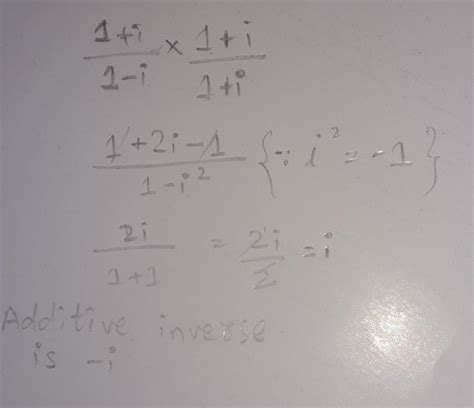 (1+i)/(1-i) × (1+i)/(1+i)
(1+2i-1)/(1-i²) {∵ i² = -1}
2i/(1+1) = 2i/2 = i
Additive inverse
is -i